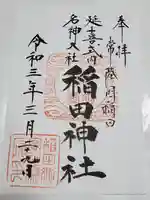 奉拝
常陸國稲田
延喜式内
名神大社
稲田神社
令和三年三月二九日